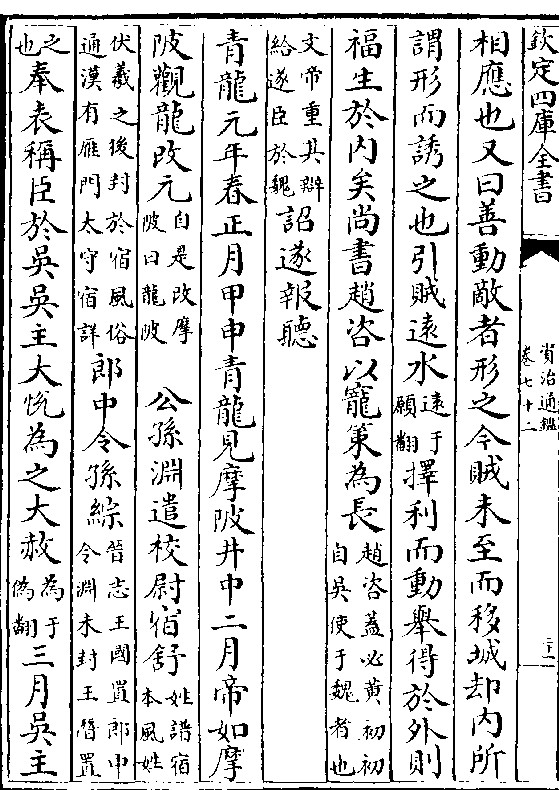 欽定四庫全書
資治通鑑
卷七十二
二十一
相應也又曰善動敵者形之今賊未至而移城却内所
謂形而誘之也引賊遠水遠于願翻擇利而動舉得於外則
福生於内矣尚書趙咨以寵策為長趙咨蓋必黄初初自吴使于魏者也
文帝重其辯給遂臣於魏詔遂報聽
青龍元年春正月甲申青龍見摩陂井中二月帝如摩
陂觀龍改元自是改摩陂曰龍陂 公孫淵遣校尉宿舒姓譜宿本風姓
伏羲之後封於宿風俗通漢有雁門太守宿詳郎中令孫綜晉志王國置郎中令淵未封王僭置
之也奉表稱臣於吴吴主大恱為之大赦為于偽翻三月吴主